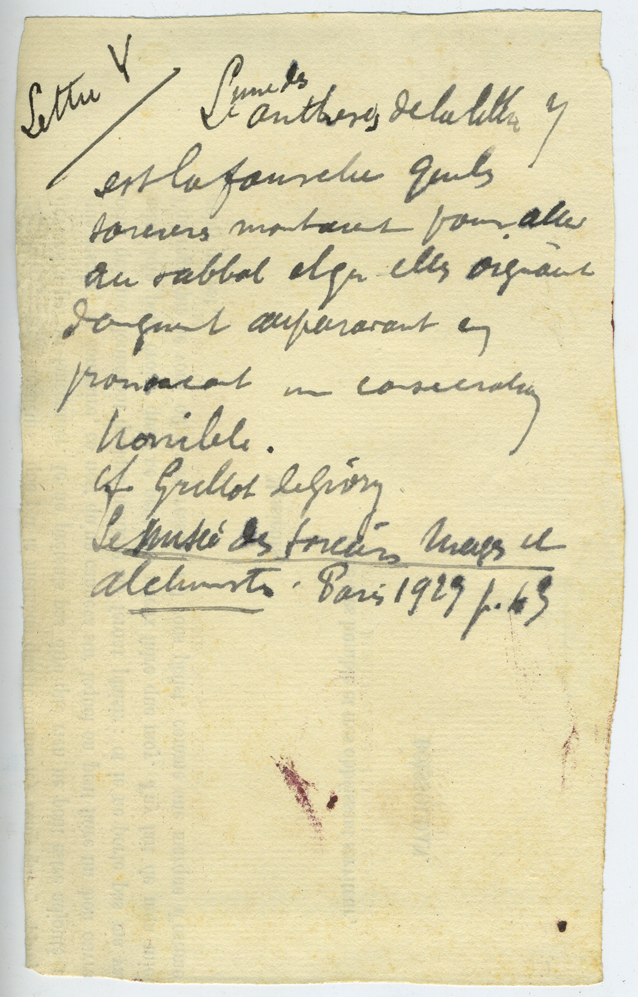 Lettre Y
L'une des
antheres de la lettre Y
est la fourche que les
sorciers montaient pour aller
au sabbat et qu'elles oignaient
d'onguent auparavant en
prononcant une consecration
horrible.
cf Grillot de Givry
Le Musée des Sorciers Mages et
alchimistes. Paris 1929 p.